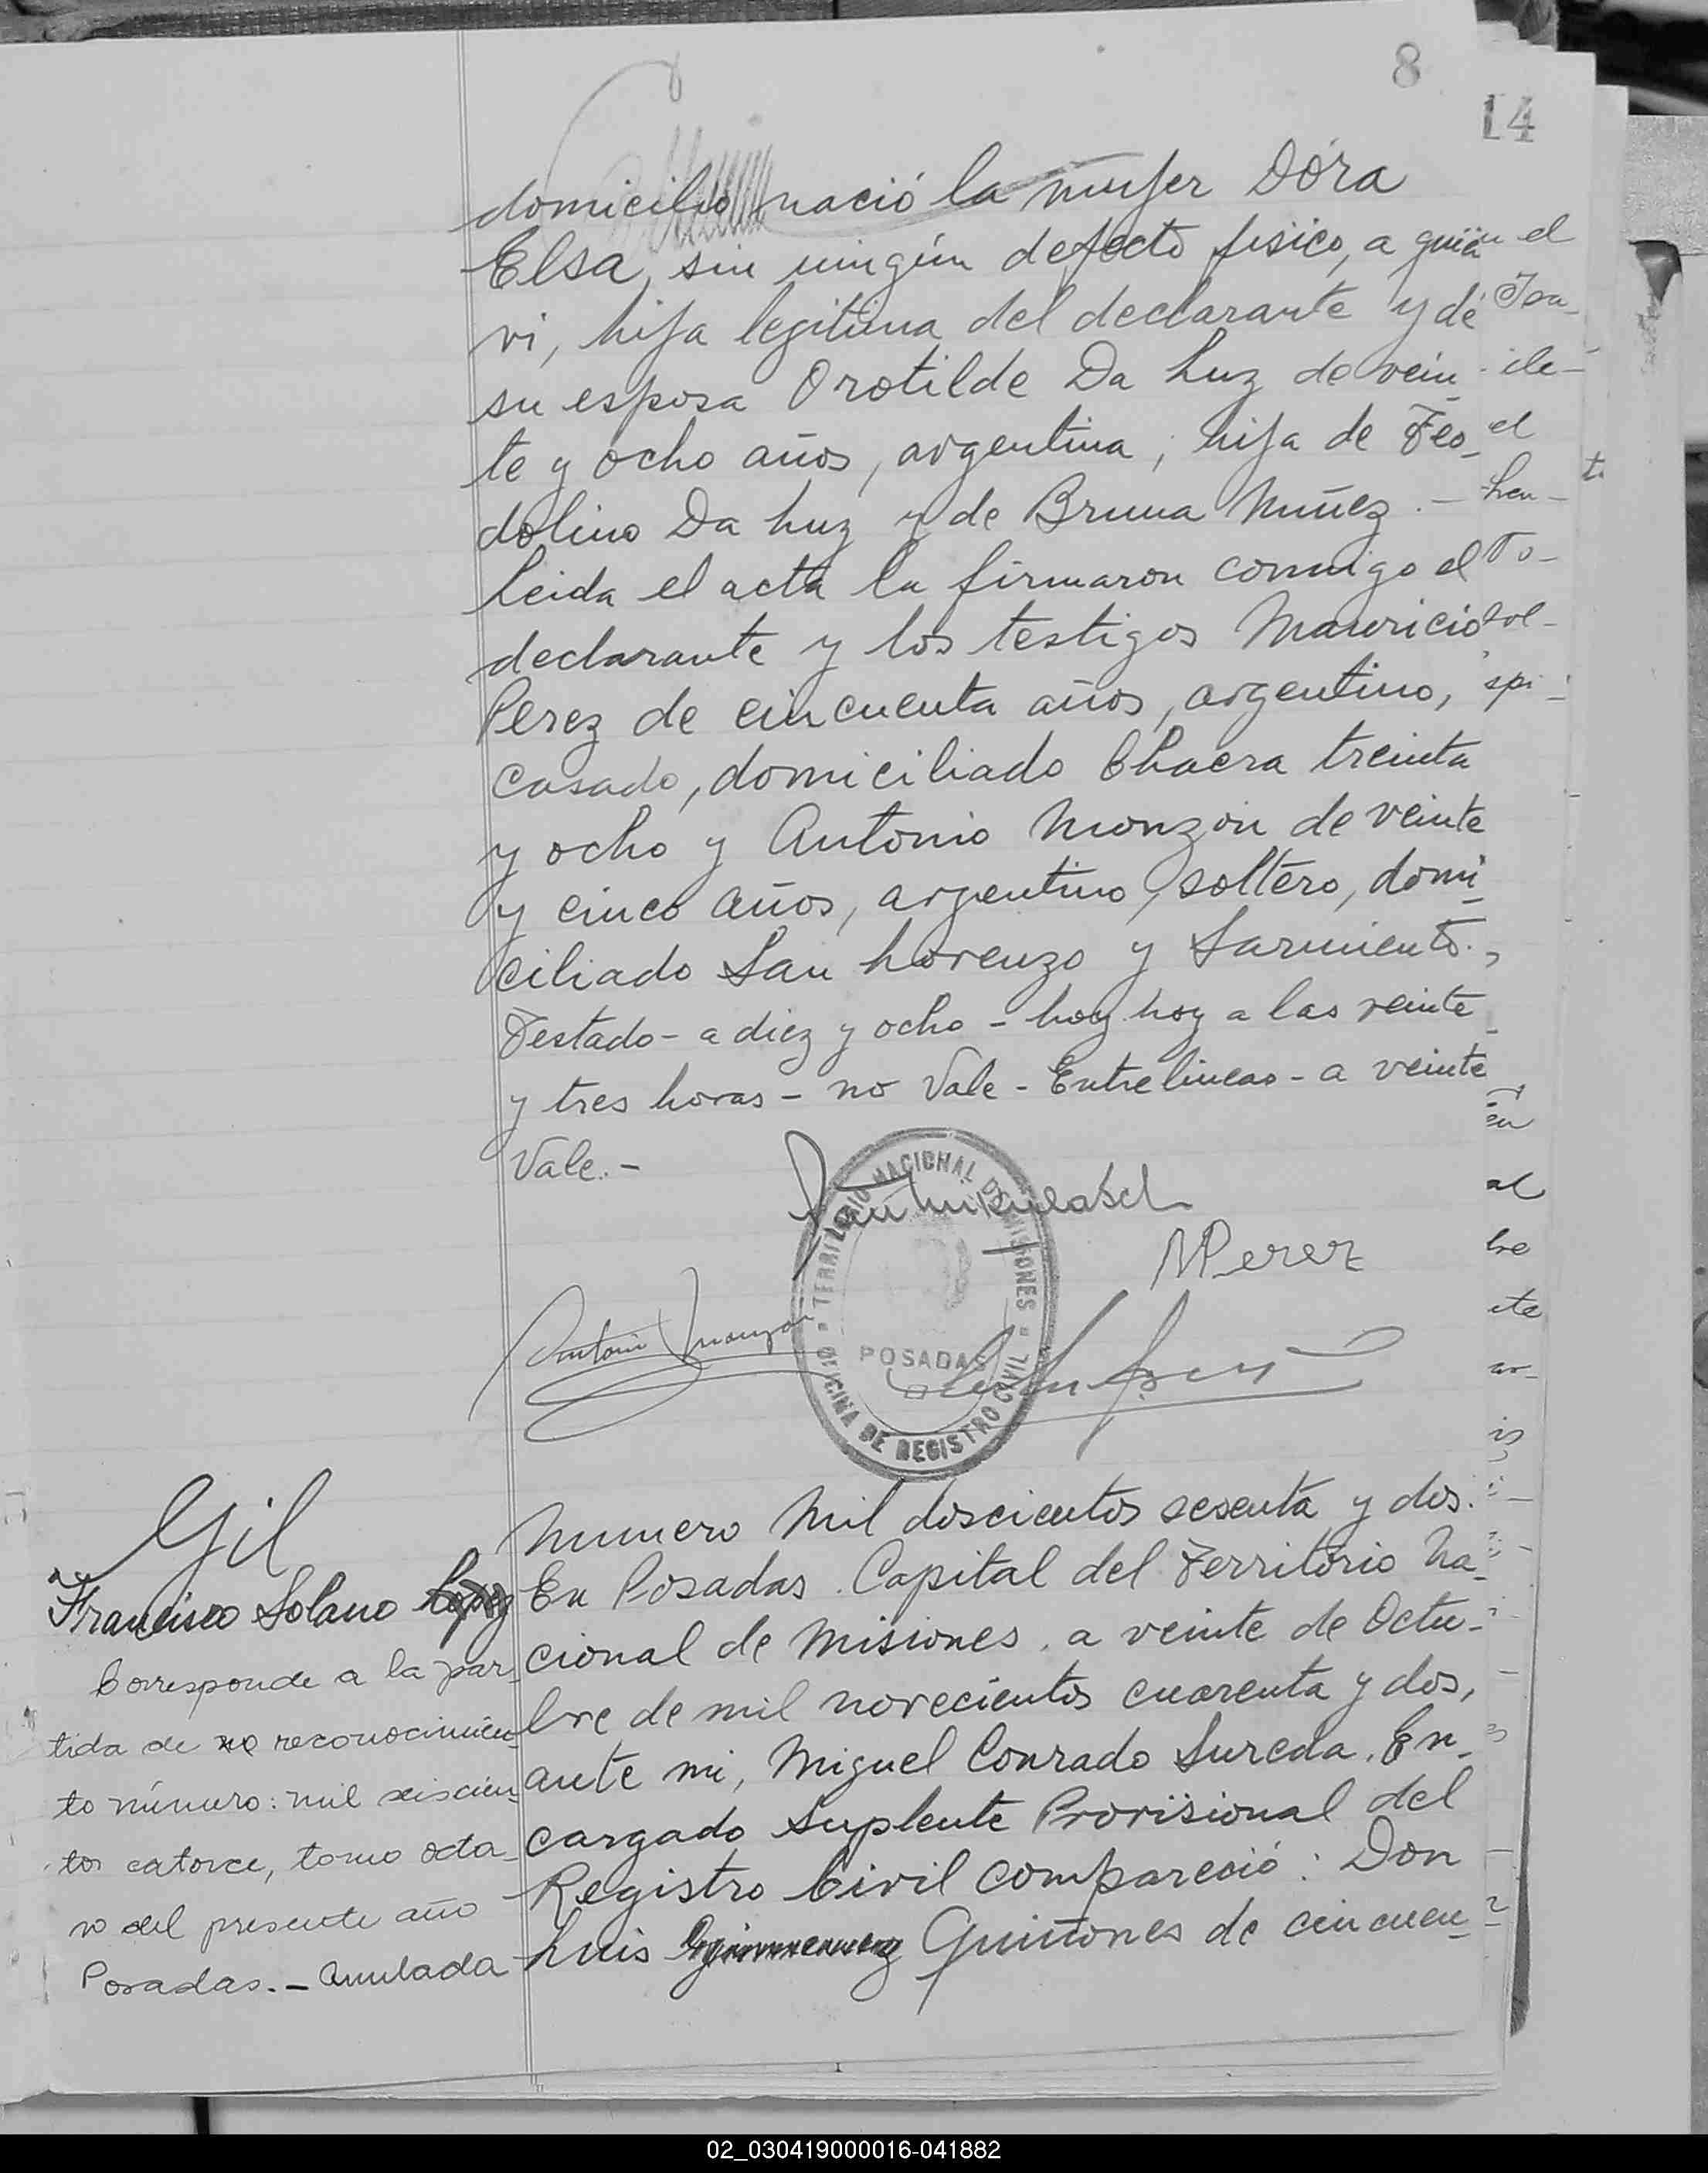 8
14
domicilio nació la mujer Dora
Elsa, sin ningún defecto fisico, a quien
vi, hija legitima del declarante y de
su esposa Orotilde Da Luz de vein_
te y ocho años, argentina, hija de Teo_
dolino Da Luz y de Bruna Nuñez. —
Leida el acta la firmaron conmigo el
declarante y los testigos Mauricio
Perez de cincuenta años, argentino,
casado, domiciliado Chacra treinta
y ocho y Antonio Monzón de veinte
y cinco años, argentino, soltero, domi_
ciliado San Lorenzo y Sarmiento.,
Testado - a diez y ocho - hoy hoy a las veinte_
y tres horas - no Vale - Entrelineas - a veinte
Vale. -
TERRITORIO NACIONAL DE MISIONES
POSADAS
OFICINA DE REGISTRO CIVIL
MPerez
Antonio Monzón
Gil
Francisco Solano Lopez
Corresponde a la par_
tida de no reconocimien_
to número: mil seiscien_
tos catorce, tomo octa_
vo del presente año
Posadas. - Anulada
Numero Mil doscientos sesenta y dos.
En Posadas. Capital del Territorio Na_
cional de Misiones. a veinte de Octu_
bre de mil novecientos cuarenta y dos,
ante mi, Miguel Conrado Sureda. En_
cargado Suplente Provisional del
Registro Civil compareció: Don
Luis Quiñones de cincuen_
el
el
al
02_030419000016-041882